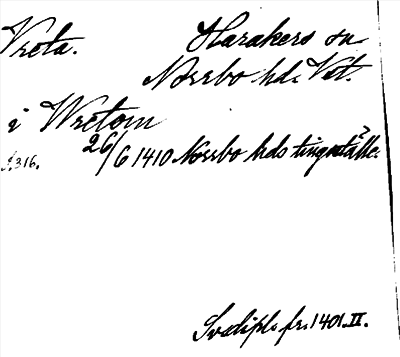 Vreta. Harakers sn
Norrbo hd. Vst.
i Wretom
S. 316. 26/6 1410 Norrbo hds tingställe.
Sv. dipl. fr. 1401. II.